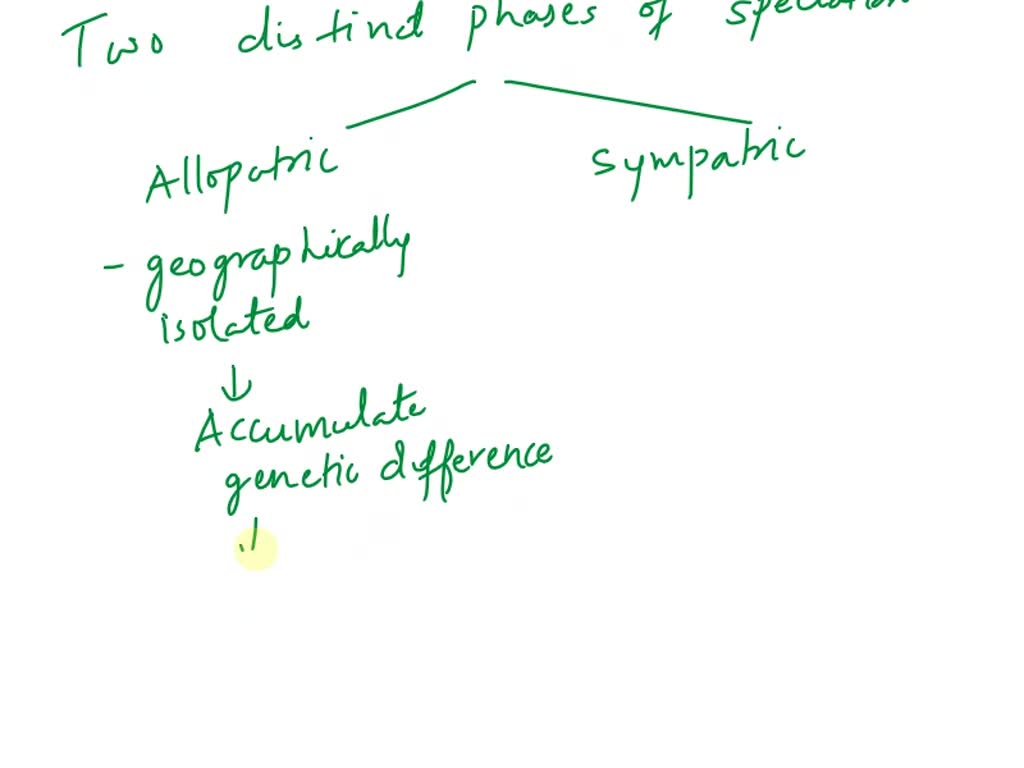 Two distinct phases of speciation
Allopatric
Sympatric
- geographically
isolated
↓
Accumulate
genetic difference